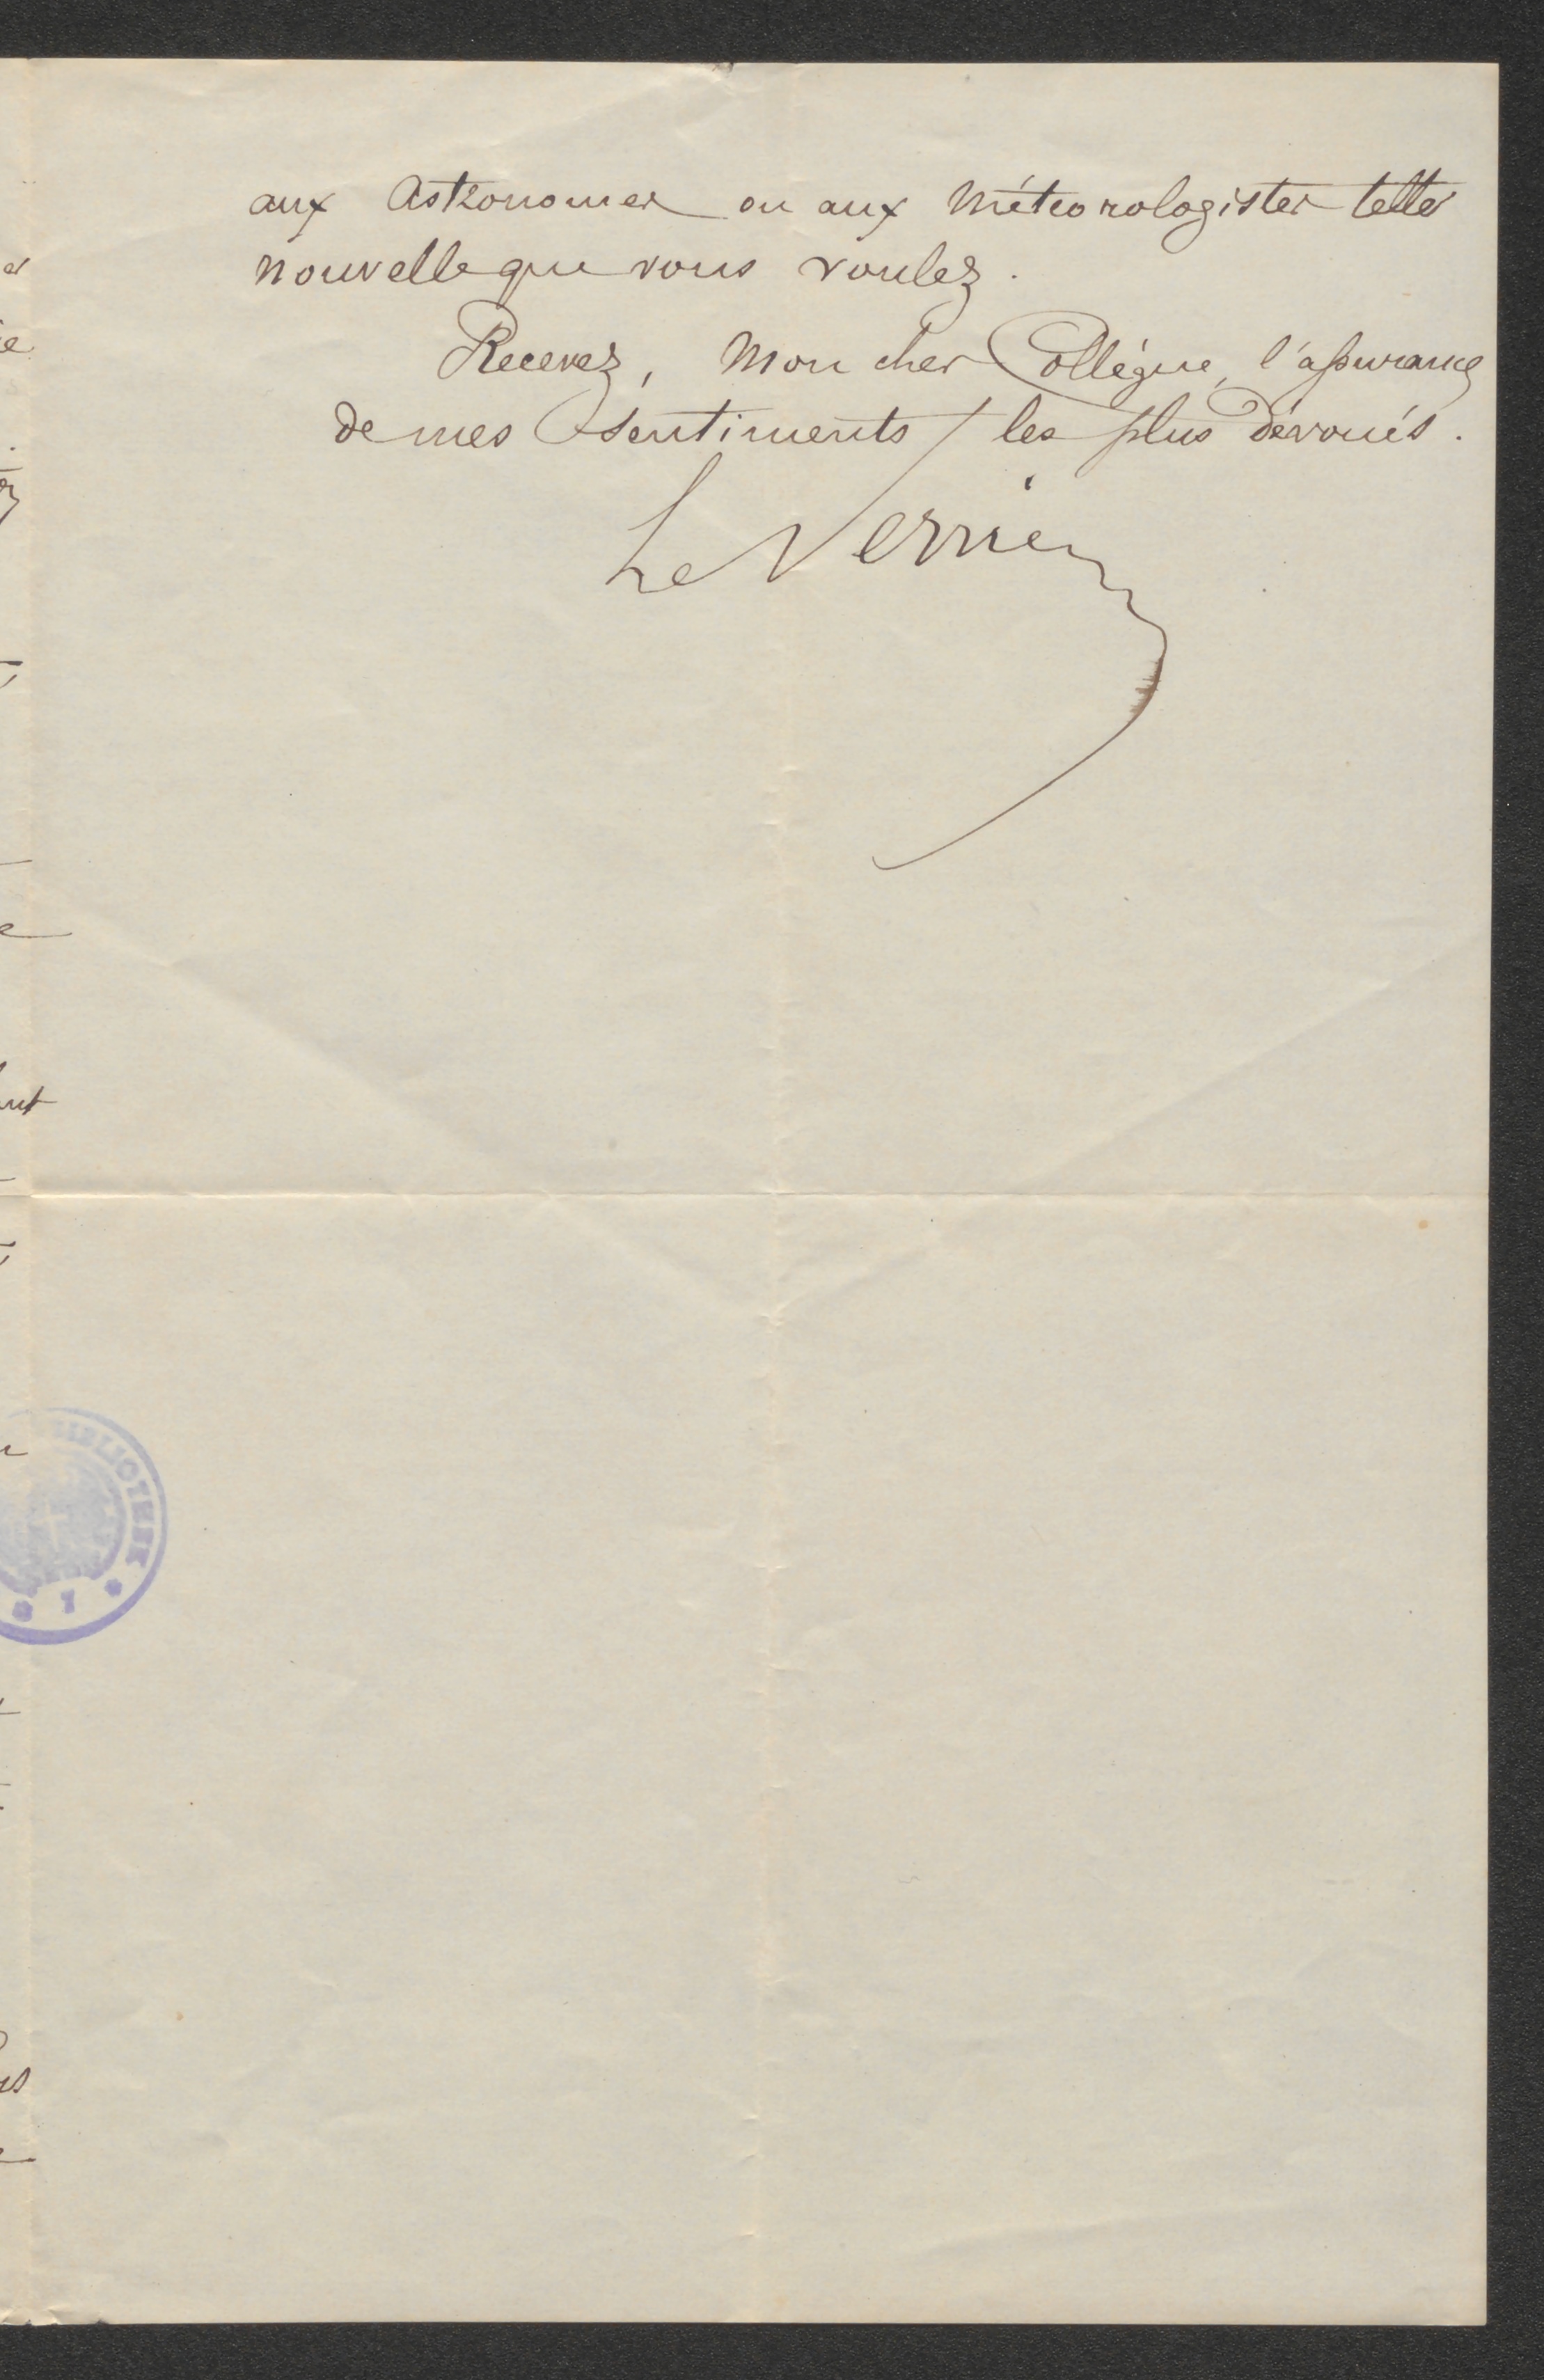 aux Astronomes ou aux Météorologistes telle
nouvelle que vous voulez.
Recevez, Mon cher Collègue, l'assurance
de mes sentiments les plus dévoués.
Le Verrier
BIBLIOTHEK